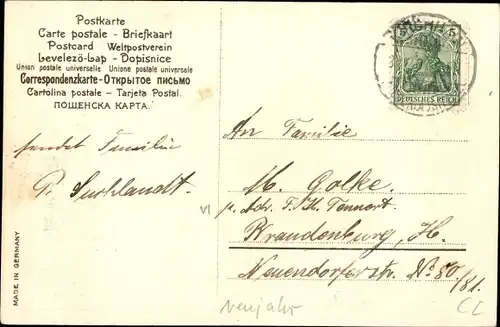 Postkarte
Carte postale - Briefkaart
Postcard Weltpostverein
Levelező-Lap - Dopisnice
Union postale universelle Unione postale universale
Correspondenzkarte-Открытое письмо
Cartolina postale - Tarjeta Postal.
ПОЩЕНСКА КАРТА.
DEUTSCHES REICH
An Familie
sendet Familie
P.
M. Golke.
p. Adr. F. H. Tennert.
Brandenburg, H.
Neuendorferstr. No 80/81.
Neujahr
MADE IN GERMANY